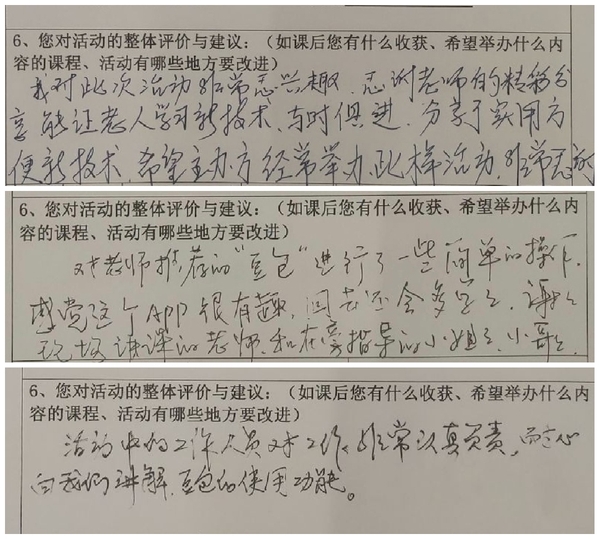 6、您对活动的整体评价与建议：（如课后您有什么收获、希望举办什么内
容的课程、活动有哪些地方要改进）
我对此次活动非常感兴趣，感谢老师的精彩分
享能让老人学习新技术，与时俱进，分享了实用方
便新技术，希望主办方经常举办此样活动，非常感谢
6、您对活动的整体评价与建议：（如课后您有什么收获、希望举办什么内
容的课程、活动有哪些地方要改进）
对老师推荐的"豆包"进行了一些简单的操作，
感觉这个APP很有趣，回去还会多学学，谢谢
现场讲课的老师，和在旁指导的小姐姐，小哥哥，
6、您对活动的整体评价与建议：（如课后您有什么收获、希望举办什么内
容的课程、活动有哪些地方要改进）
活动中的工作人员对工作非常认真负责，耐心
向我们讲解豆包的使用功能。